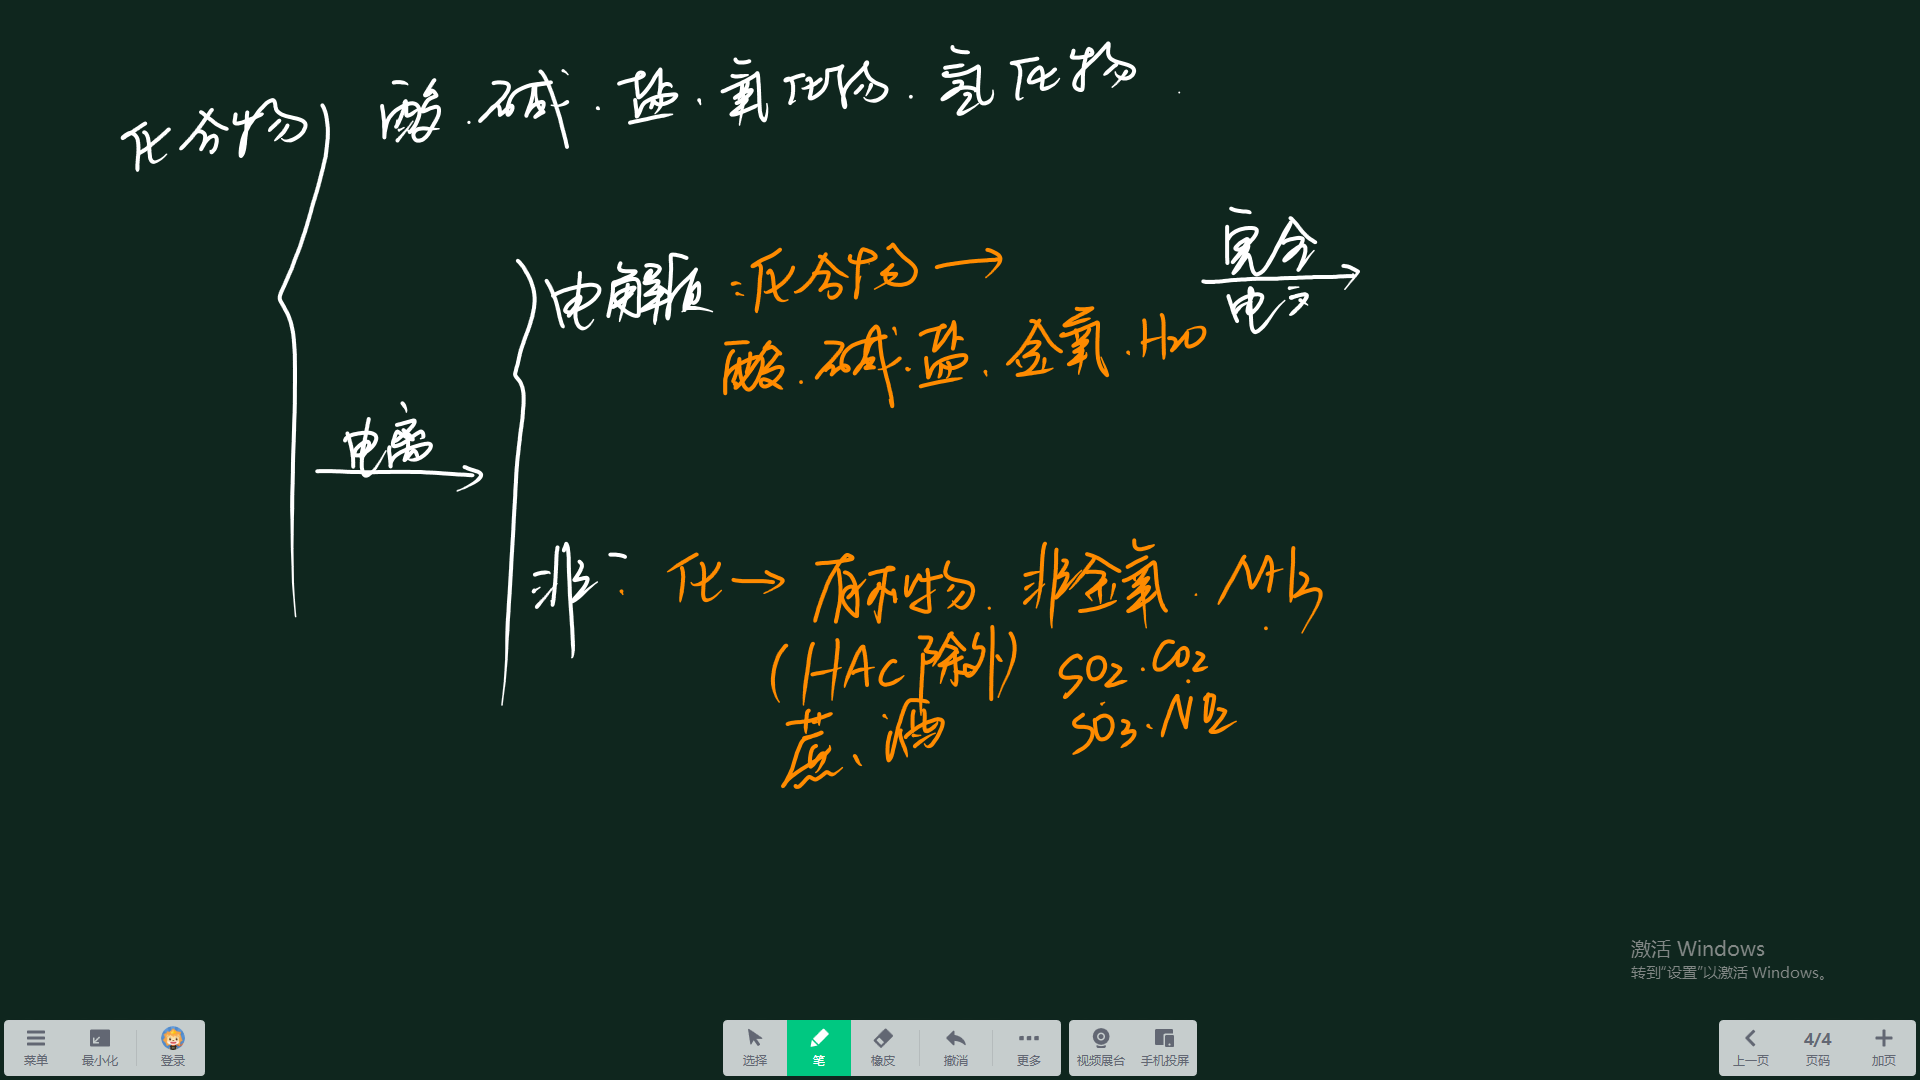 化合物 酸.碱.盐.氧化物.氢化物.
电解质:化合物→ 完全
电
酸.碱.盐.金氧.H2O
电离
非: 化→有机物.非金氧.NH3
(HAc除外) SO2.CO2
蔗、酒 SO3.NO2
激活 Windows
转到“设置”以激活 Windows。
菜单 最小化 登录 选择 笔 橡皮 撤消 更多 视频展台 手机投屏 上一页 4/4 页码 加页